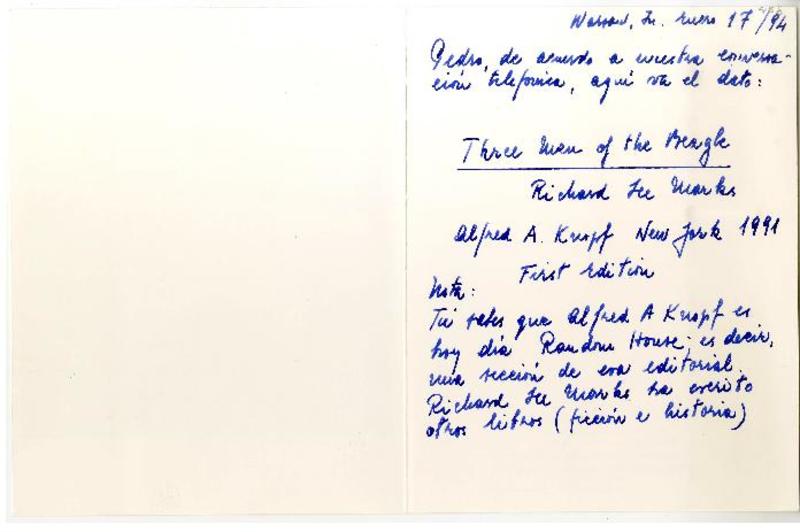 Warsaw, In. Enero 17/94
Pedro, de acuerdo a nuestra conversa-
ción telefonica, aquí va el dato:
Three Men of the Beagle
Richard Lee Marks
Alfred A. Knopf New York 1991
First Edition
Nota:
Tú sabes que Alfred A Knopf es
hoy día Random House; es decir,
una sección de esa editorial.
Richard Lee Marks ha escrito
otros libros (ficción e historia)